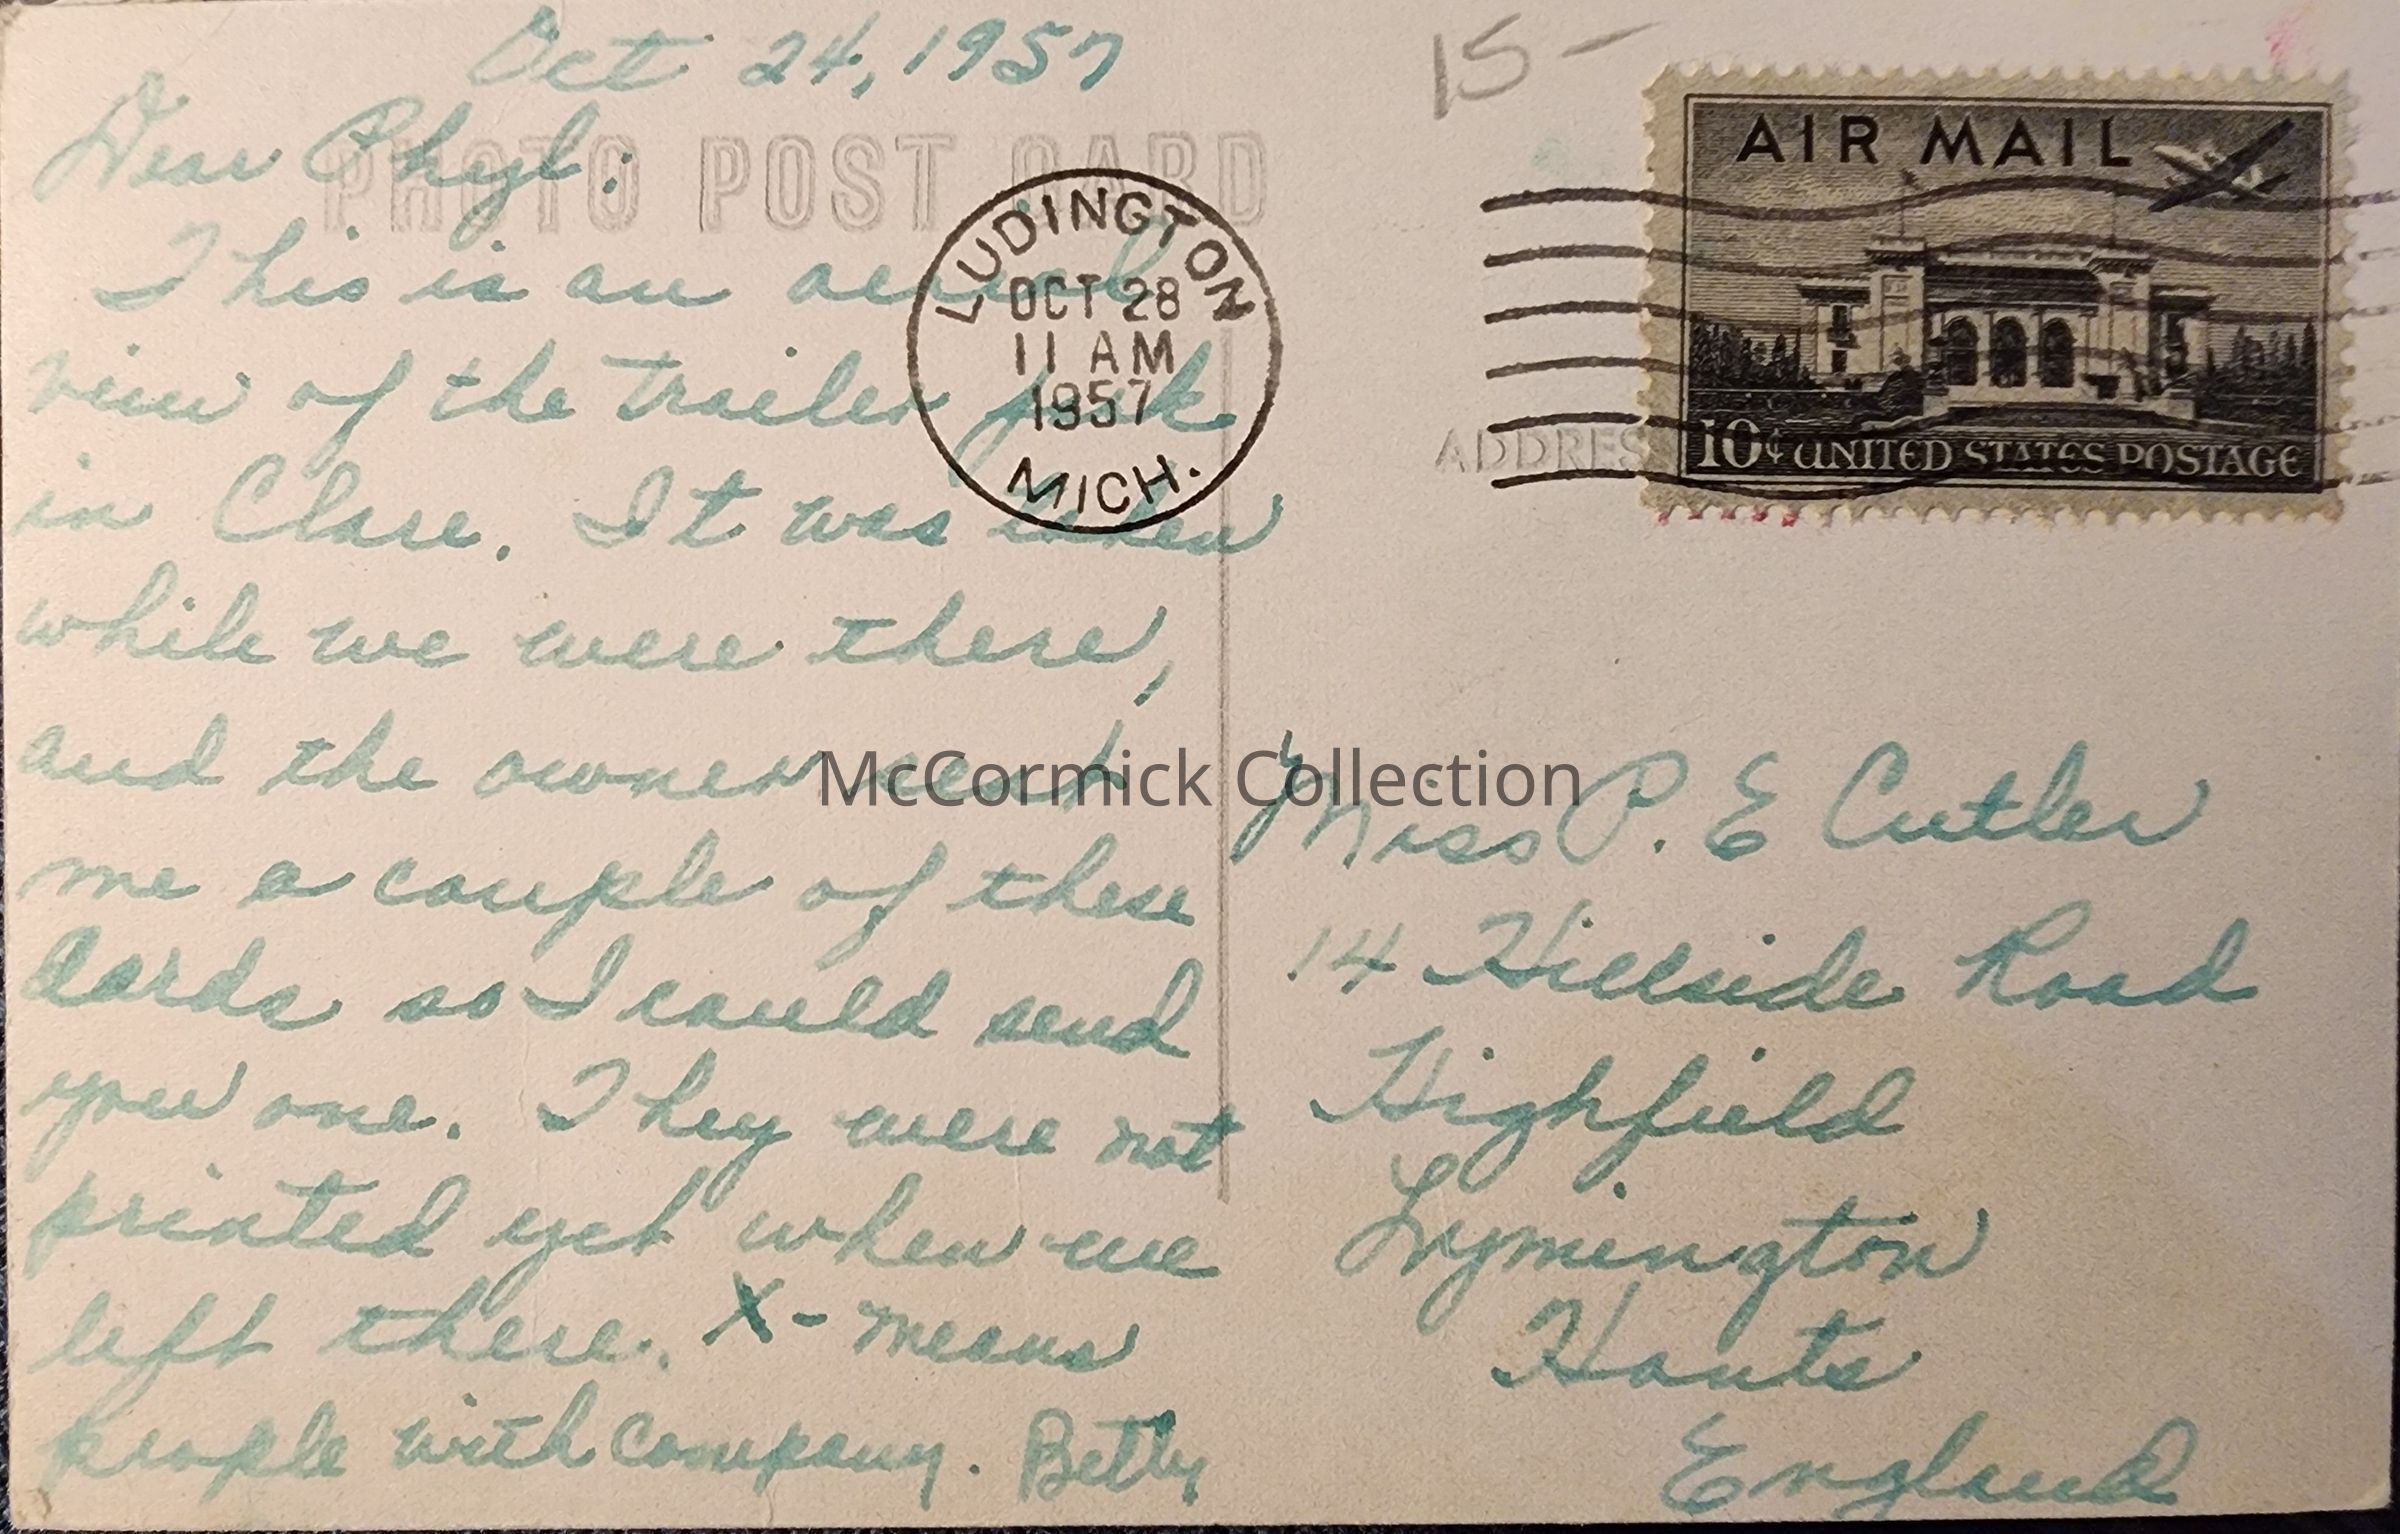 Oct 24, 1957
Dear Phyl:
PHOTO POST CARD
This is an aerial
view of the trailer park
in Clare. It was taken
while we were there,
and the owner sent
me a couple of these
cards so I could send
you one. They were not
printed yet when we
left there. X- means
people with company. Betty
LUDINGTON
OCT 28
11 AM
1957
MICH.
15-
AIR MAIL
10¢ UNITED STATES POSTAGE
ADDRES
McCormick Collection
Miss P. E Cutler
14 Hillside Road
Highfield
Lymington
Hants
England